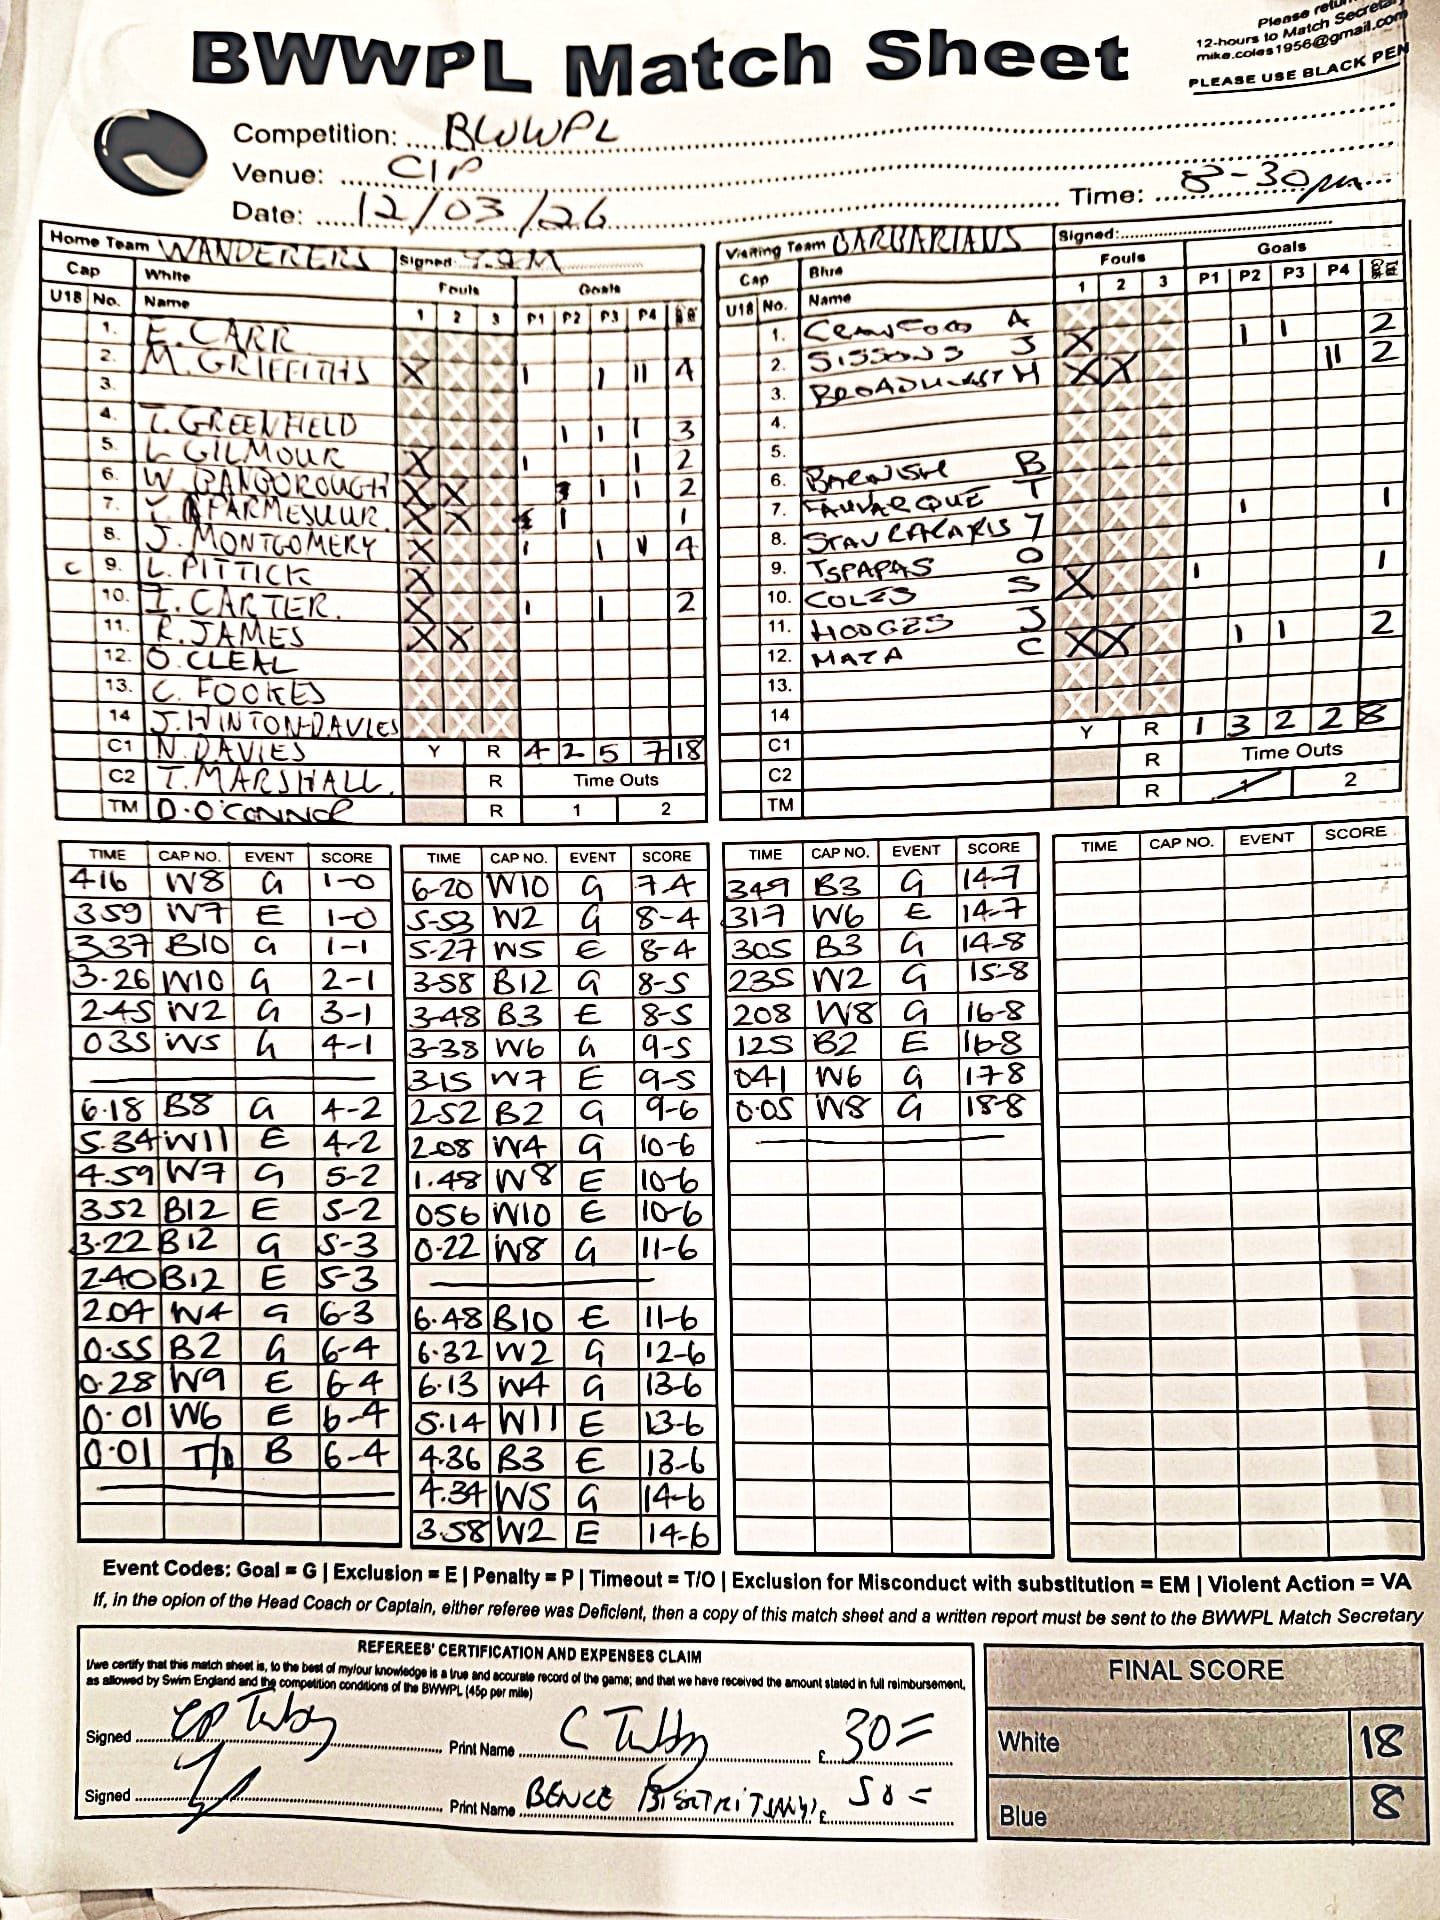 Please return
12-hours to Match Secretary
mike.coles1956@gmail.com
PLEASE USE BLACK PEN
BWWPL Match Sheet
Competition: BWWPL
Venue: CIP
Date: 12/03/26 Time: 8-30pm
Home Team WANDERERS Signed
Cap White Fouls Goals
U18 No. Name 1 2 3 P1 P2 P3 P4
1. E. CARR
2. M. GRIFFITHS X 1 1 11 4
3.
4. T. GREENFIELD 1 1 1 3
5. L GILMOUR X 1 1 2
6. W. X X 1 1 2
7. X X 1 1
8. J. MONTGOMERY X 1 1 11 4
C 9. L. PITTICK X
10. I. CARTER. X 1 1 2
11. R. JAMES X X
12. O. CLEAL
13. C. FOOKES
14 J. HINTON-DAVIES
C1 N. DAVIES Y R 4 2 5 7 18
C2 T. MARSHALL. R Time Outs
TM D. O'CONNOR R 1 2
Visiting Team BARBARIANS Signed:
Cap Blue Fouls Goals
U18 No. Name 1 2 3 P1 P2 P3 P4
1. A
2. SISSONS J X 1 1 2
3. BROADHURST H X X 11 2
4.
5.
6. BARNISH B
7. FAUVARQUE T
8. 7 1 1
9. TSPAPAS O
10. COLES S X 1 1
11. HODGES J
12. MATA C X X 1 1 2
13.
14
C1 Y R 1 3 2 2 8
C2 R Time Outs
TM R 1 2
TIME CAP NO. EVENT SCORE
416 W8 G 1-0
359 W7 E 1-0
337 B10 G 1-1
3-26 W10 G 2-1
245 W2 G 3-1
035 W5 G 4-1
6.18 B8 G 4-2
5.34 W11 E 4-2
4.59 W7 G 5-2
352 B12 E 5-2
3-22 B12 G 5-3
240 B12 E 5-3
204 W4 G 6-3
0-55 B2 G 6-4
0.28 W9 E 6-4
0.01 W6 E 6-4
0.01 T/O B 6-4
TIME CAP NO. EVENT SCORE
6-20 W10 G 7-4
5-53 W2 G 8-4
5-27 W5 E 8-4
3-58 B12 G 8-5
3-48 B3 E 8-5
3-38 W6 G 9-5
3-15 W7 E 9-5
2-52 B2 G 9-6
2.08 W4 G 10-6
1.48 W8 E 10-6
056 W10 E 10-6
0-22 W8 G 11-6
6.48 B10 E 11-6
6-32 W2 G 12-6
6.13 W4 G 13-6
5.14 W11 E 13-6
4.36 B3 E 13-6
4.34 W5 G 14-6
3.58 W2 E 14-6
TIME CAP NO. EVENT SCORE
349 B3 G 14-7
317 W6 E 14-7
305 B3 G 14-8
235 W2 G 15-8
208 W8 G 16-8
125 B2 E 16-8
041 W6 G 17-8
0.05 W8 G 18-8
TIME CAP NO. EVENT SCORE
Event Codes: Goal = G | Exclusion = E | Penalty = P | Timeout = T/O | Exclusion for Misconduct with substitution = EM | Violent Action = VA
If, in the opion of the Head Coach or Captain, either referee was Deficient, then a copy of this match sheet and a written report must be sent to the BWWPL Match Secretary
REFEREES' CERTIFICATION AND EXPENSES CLAIM
I/we certify that this match sheet is, to the best of my/our knowledge is a true and accurate record of the game; and that we have received the amount stated in full reimbursement,
as allowed by Swim England and the competition conditions of the BWWPL (45p per mile)
Signed Print Name C Tubby £ 30 =
Signed Print Name BENCE £ 50 =
FINAL SCORE
White 18
Blue 8